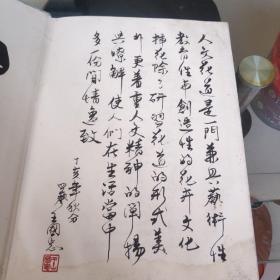 人文花道是一門兼具藝術性
教育性与創造性的花卉文化
插花除了研習花道的形式美
外更着重人文精神的闡揚
共瞭解使人們在生活當中
多份閒情逸致
丁亥年秋分
王國忠